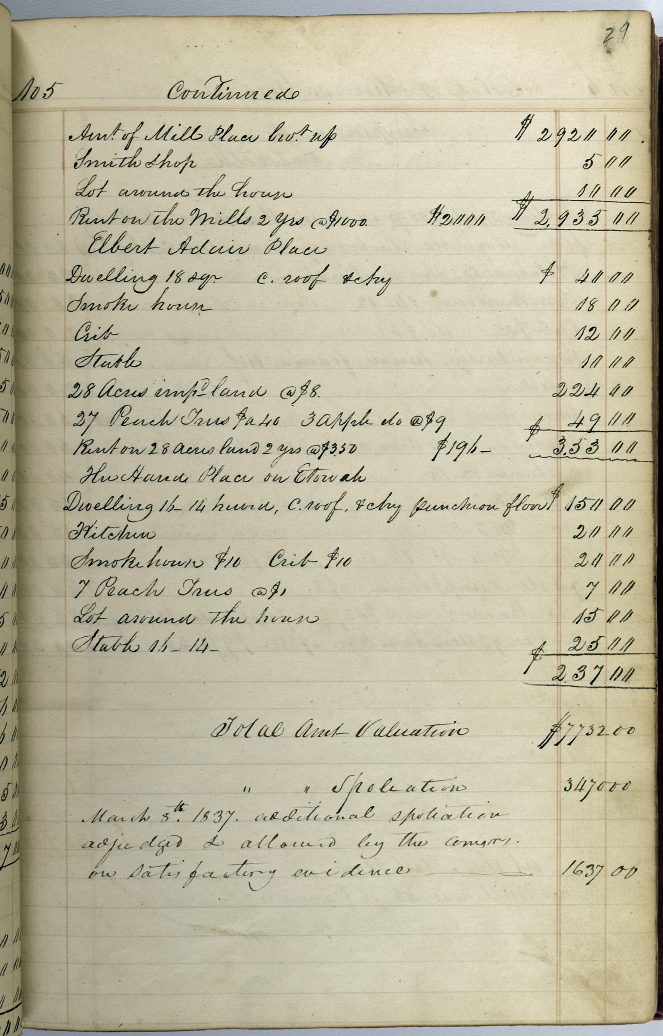 29
No 5 Continued
Amt. of Mill Place brot. up $ 2920 00
Smith shop 5 00
Lot around the house 10 00
Rent on the Mills 2 yrs @ $1000. $2000 $ 2,935 00
Elbert Adair Place
Dwelling 18 sqr c. roof & chy $ 40 00
Smoke house 18 00
Crib 12 00
Stable 10 00
28 Acres impd. land @ $8. 224 00
27 Peach Trees 40 3 apple do @ $9 $ 49 00
Rent on 28 acres land 2 yrs @ $3 50 $196- 353 00
Place on Etowah
Dwelling 16-14 hewd, c. roof, & chy puncheon floor $ 150 00
Kitchen 20 00
Smoke house $10 Crib $10 20 00
7 Peach Trees @ $1 7 00
Lot around the house 15 00
Stable 16-14- 25 00
$ 237 00
Total Amt Valuation $7732 00
" " Spoliation 3470 00
March 8th. 1837. additional spoliation
adjudged & allowed by the comrs.
on satisfactory evidence 1637 00